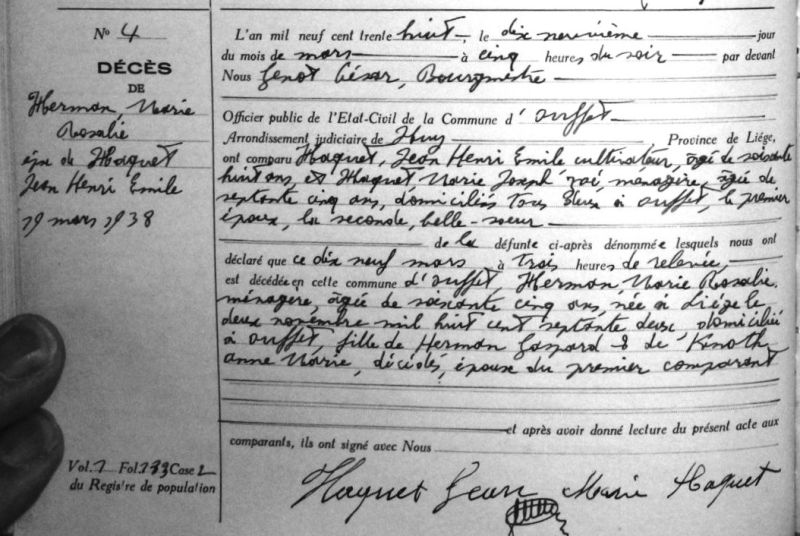 No 4
DÉCÈS
DE
Herman, Marie
Rosalie
épse de Haquet
Jean Henri Emile
19 mars 1938
Vol. 1 Fol. 133 Case 2
du Registre de population
L'an mil neuf cent trente huit, le dix neuvième jour
du mois de mars à cinq heures du soir par devant
Nous Genot César, Bourgmestre
Officier public de l'Etat-Civil de la Commune d'Ouffet
Arrondissement judiciaire de Huy Province de Liége,
ont comparu Haquet, Jean Henri Emile cultivateur, âgé de soixante
huit ans, et Haquet Marie Joseph ménagère, âgée de
septante cinq ans, domiciliés tous deux à Ouffet, le premier
époux, la seconde, belle-soeur
de la défunte ci-après dénommée lesquels nous ont
déclaré que ce dix neuf mars à trois heures de relevée,
est décédée en cette commune d'Ouffet, Herman Marie Rosalie,
ménagère, âgée de soixante cinq ans, née à Liége le
deux novembre mil huit cent septante deux domiciliée
à Ouffet, fille de Herman Gaspard & de Kinoth
Anne Marie, décédés, épouse du premier comparant
et après avoir donné lecture du présent acte aux
comparants, ils ont signé avec Nous
Haquet Jean Marie Haquet